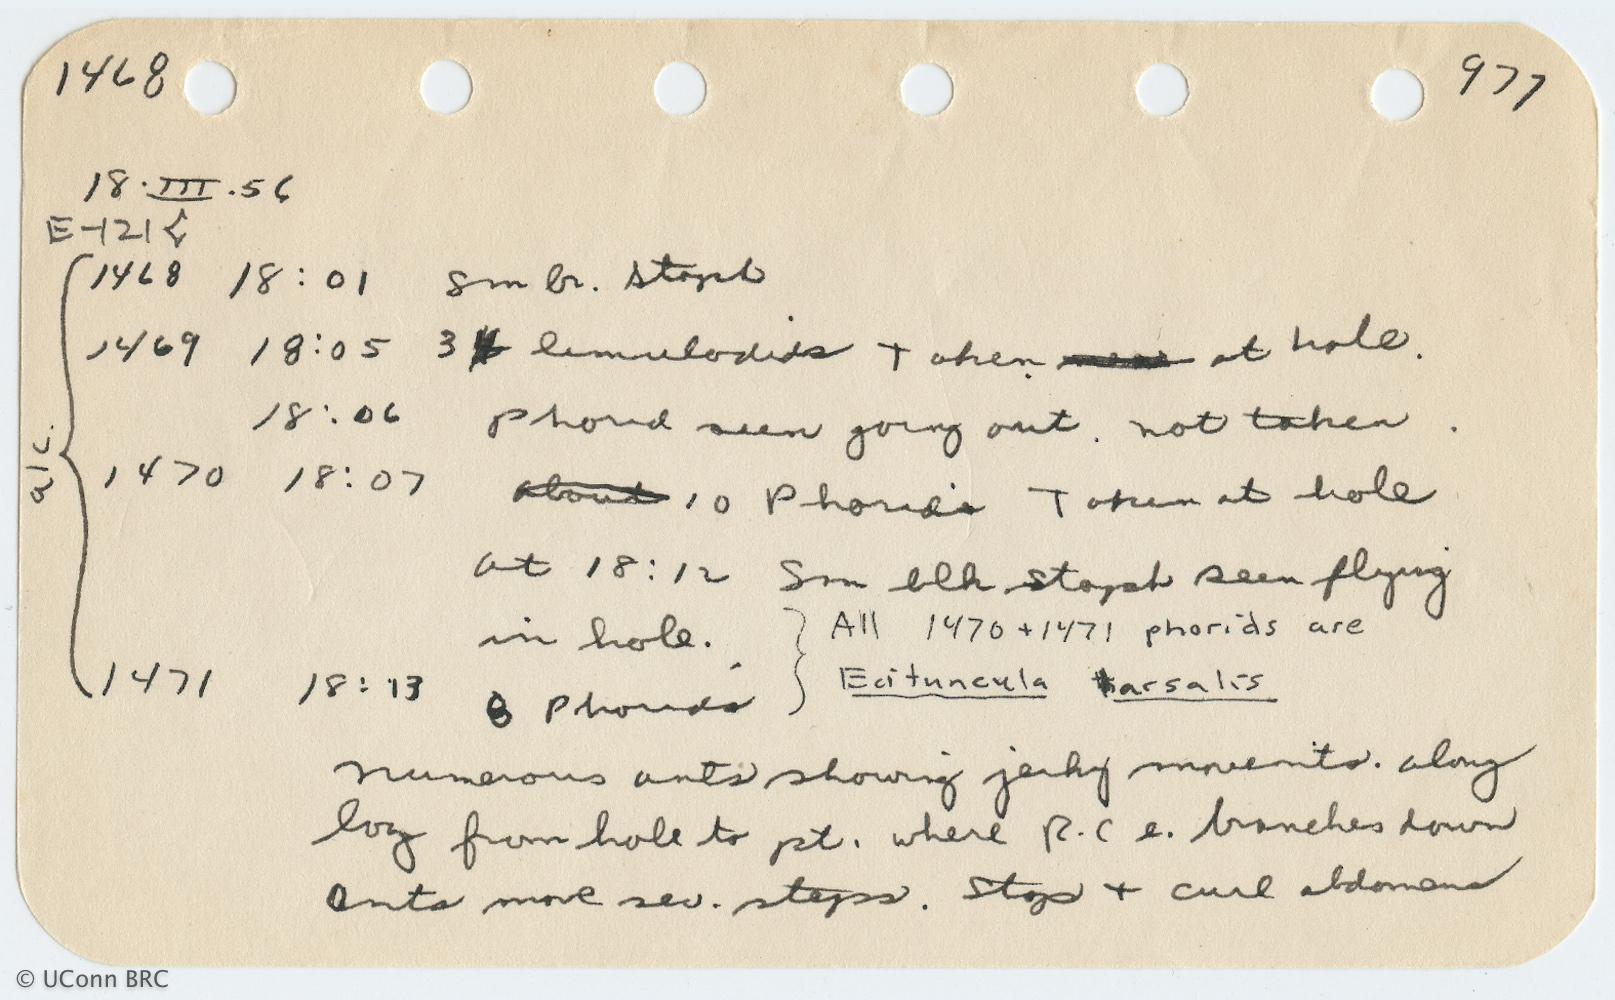 1468 977
18.III.56
E-121
1468 18:01 Sm br. staph
1469 18:05 3 limulodids Taken at hole.
18:06 Phorid seen going out. not taken.
1470 18:07 about 10 Phorids Taken at hole
at 18:12 Sm blk staph seen flying
in hole. } All 1470+1471 phorids are
1471 18:13 8 Phorids Ecituncula tarsalis
Numerous ants showing jerky movem'ts. along
log from hole to pt. where R.C e. branches down
Ants move sev. steps. Stop + curl abdomens
© UConn BRC